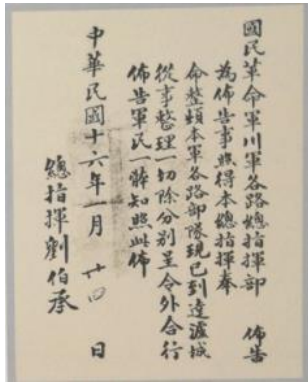 國民革命軍川軍各路總指揮部 佈告
為佈告事照得本總指揮奉
命整頓本軍各路部隊現已到達瀘城
從事整理一切除分別呈令外合行
佈告軍民一體知照此佈
中華民國十六年一月廿四日
總指揮劉伯承